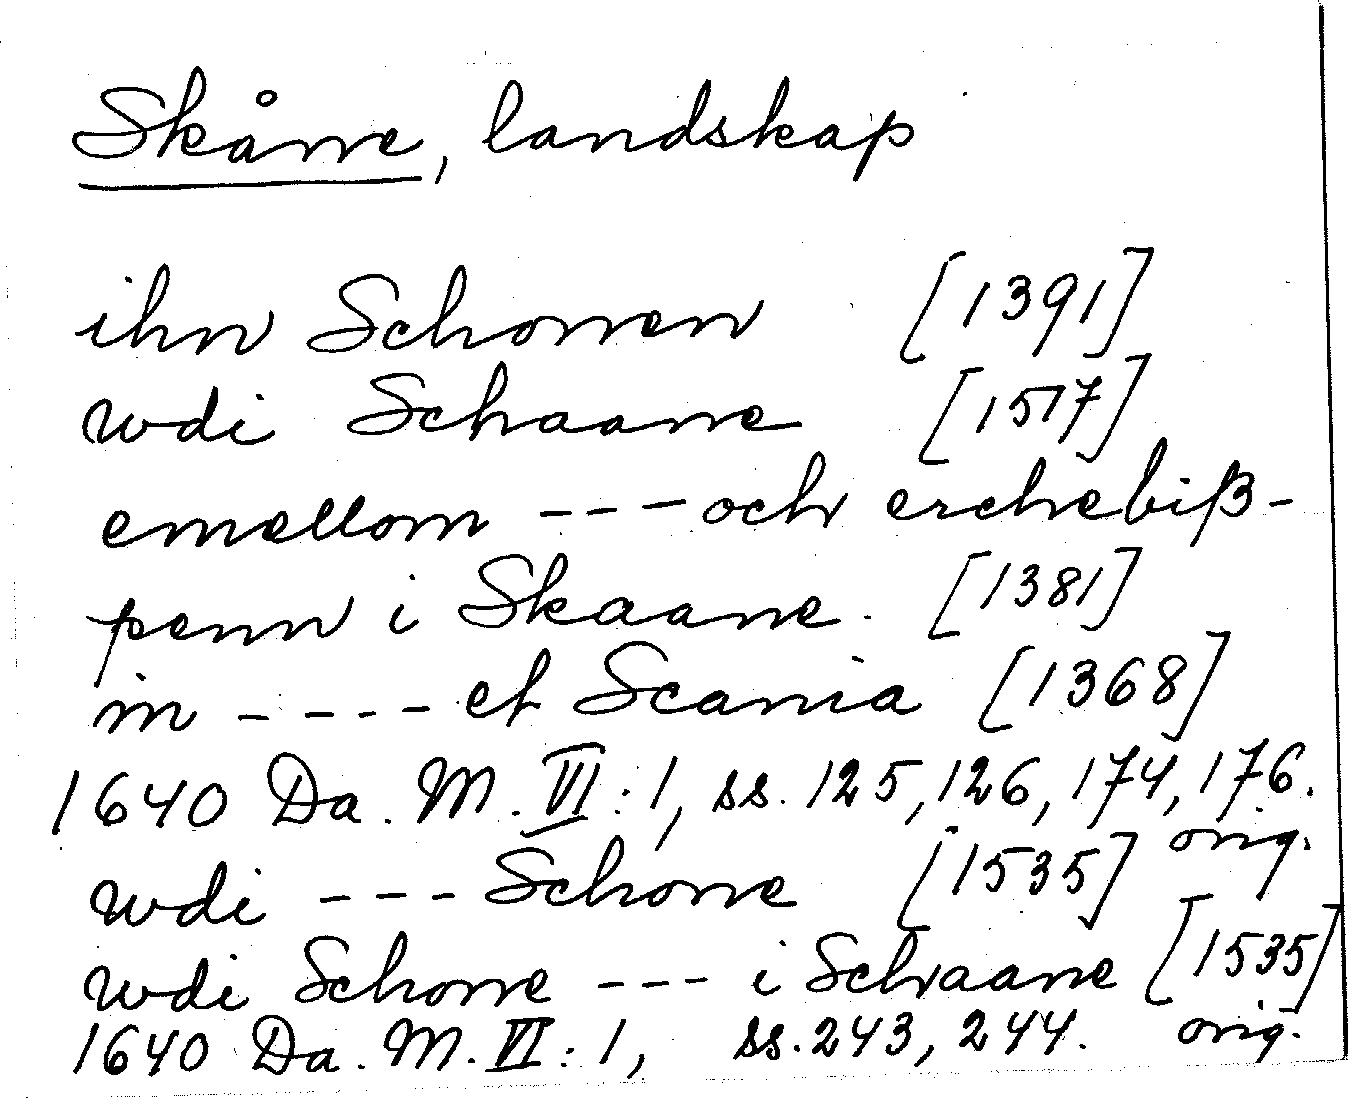 Skåne, landskap
ihn Schonen [1391]
wdi Schaane [1517]
emellom --- och erchebiß-
penn i Skaane. [1381]
in ---- et Scania [1368]
1640 Da. M. VI:1, ss. 125, 126, 174, 176.
orig.
wdi --- Schone [1535]
wdi Schone --- i Schaane [1535]
1640 Da. M. VI:1, ss. 243, 244. orig.